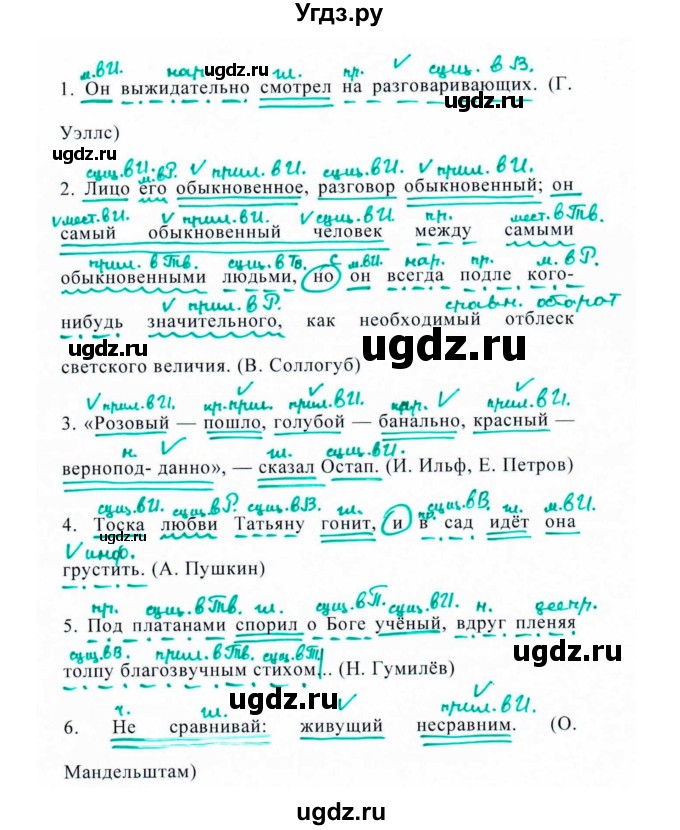 Угдз.ру
м.вИ. нар. гл. пр. сущ. в В.
ugdz.ru
1. Он выжидательно смотрел на разговаривающих. (Г.
ugdz.ru
Уэллс)
ugdz.ru
сущ.вИ. м.вР. прил.вИ. сущ.вИ. прил.вИ.
2. Лицо его обыкновенное, разговор обыкновенный; он
мест.вИ. прил.вИ. сущ.вИ. пр. мест.вТв.
самый обыкновенный человек между самыми
прил.вТв. сущ.вТв. с м.вИ. нар. пр. м.вР.
обыкновенными людьми, но он всегда подле кого-
прил.вР. сравн. оборот
нибудь значительного, как необходимый отблеск
ugdz.ru
ugdz.ru
светского величия. (В. Соллогуб)
прил.вИ. кр.прил. прил.вИ. нар. прил.вИ.
3. «Розовый — пошло, голубой — банально, красный —
ugdz.ru
н. гл. сущ.вИ.
вернопод- данно», — сказал Остап. (И. Ильф, Е. Петров)
ugdz.ru
сущ.вИ. сущ.вР. сущ.вВ. гл. пр. сущ.вВ. гл. м.вИ.
4. Тоска любви Татьяну гонит, и в сад идёт она
инф.
грустить. (А. Пушкин)
ugdz.ru
пр. сущ.вТв. гл. сущ.вП. сущ.вИ. н. деепр.
5. Под платанами спорил о Боге учёный, вдруг пленяя
сущ.вВ. прил.вТв. сущ.вТв.
толпу благозвучным стихом... (Н. Гумилёв)
ugdz.ru
ugdz.ru
ч. гл. прил.вИ.
6. Не сравнивай: живущий несравним. (О.
ugdz.ru
Мандельштам)
ugdz.ru